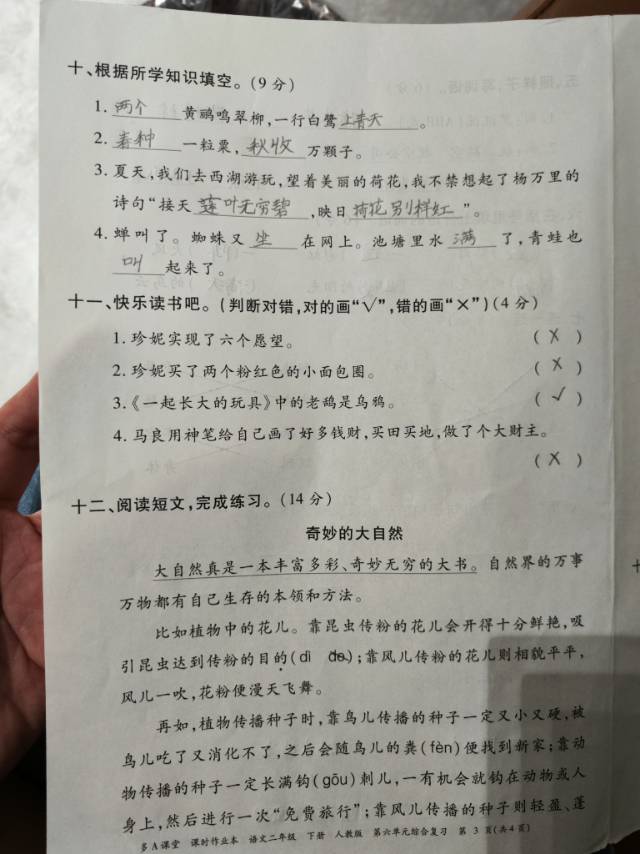 十、根据所学知识填空。(9分)
1. 两个 黄鹂鸣翠柳,一行白鹭 上青天 。
2. 春种 一粒粟, 秋收 万颗子。
3. 夏天,我们去西湖游玩,望着美丽的荷花,我不禁想起了杨万里的
诗句“接天 莲叶无穷碧 ,映日 荷花别样红 ”。
4. 蝉叫了。蜘蛛又 坐 在网上。池塘里水 满 了,青蛙也
叫 起来了。
十一、快乐读书吧。(判断对错,对的画“√”,错的画“×”)(4分)
1. 珍妮实现了六个愿望。 ( X )
2. 珍妮买了两个粉红色的小面包圈。 ( X )
3.《一起长大的玩具》中的老鸹是乌鸦。 ( √ )
4. 马良用神笔给自己画了好多钱财,买田买地,做了个大财主。
( X )
十二、阅读短文,完成练习。(14分)
奇妙的大自然
大自然真是一本丰富多彩、奇妙无穷的大书。自然界的万事
万物都有自己生存的本领和方法。
比如植物中的花儿。靠昆虫传粉的花儿会开得十分鲜艳,吸
引昆虫达到传粉的目的(dì de);靠风儿传粉的花儿则相貌平平,
风儿一吹,花粉便漫天飞舞。
再如,植物传播种子时,靠鸟儿传播的种子一定又小又硬,被
鸟儿吃了又消化不了,之后会随鸟儿的粪(fèn)便找到新家;靠动
物传播的种子一定长满钩(gōu)刺儿,一有机会就钩在动物或人
身上,然后进行一次“免费旅行”;靠风儿传播的种子则轻盈、蓬
多A课堂 课时作业本 语文二年级 下册 人教版 第六单元综合复习 第 3 页(共4页)